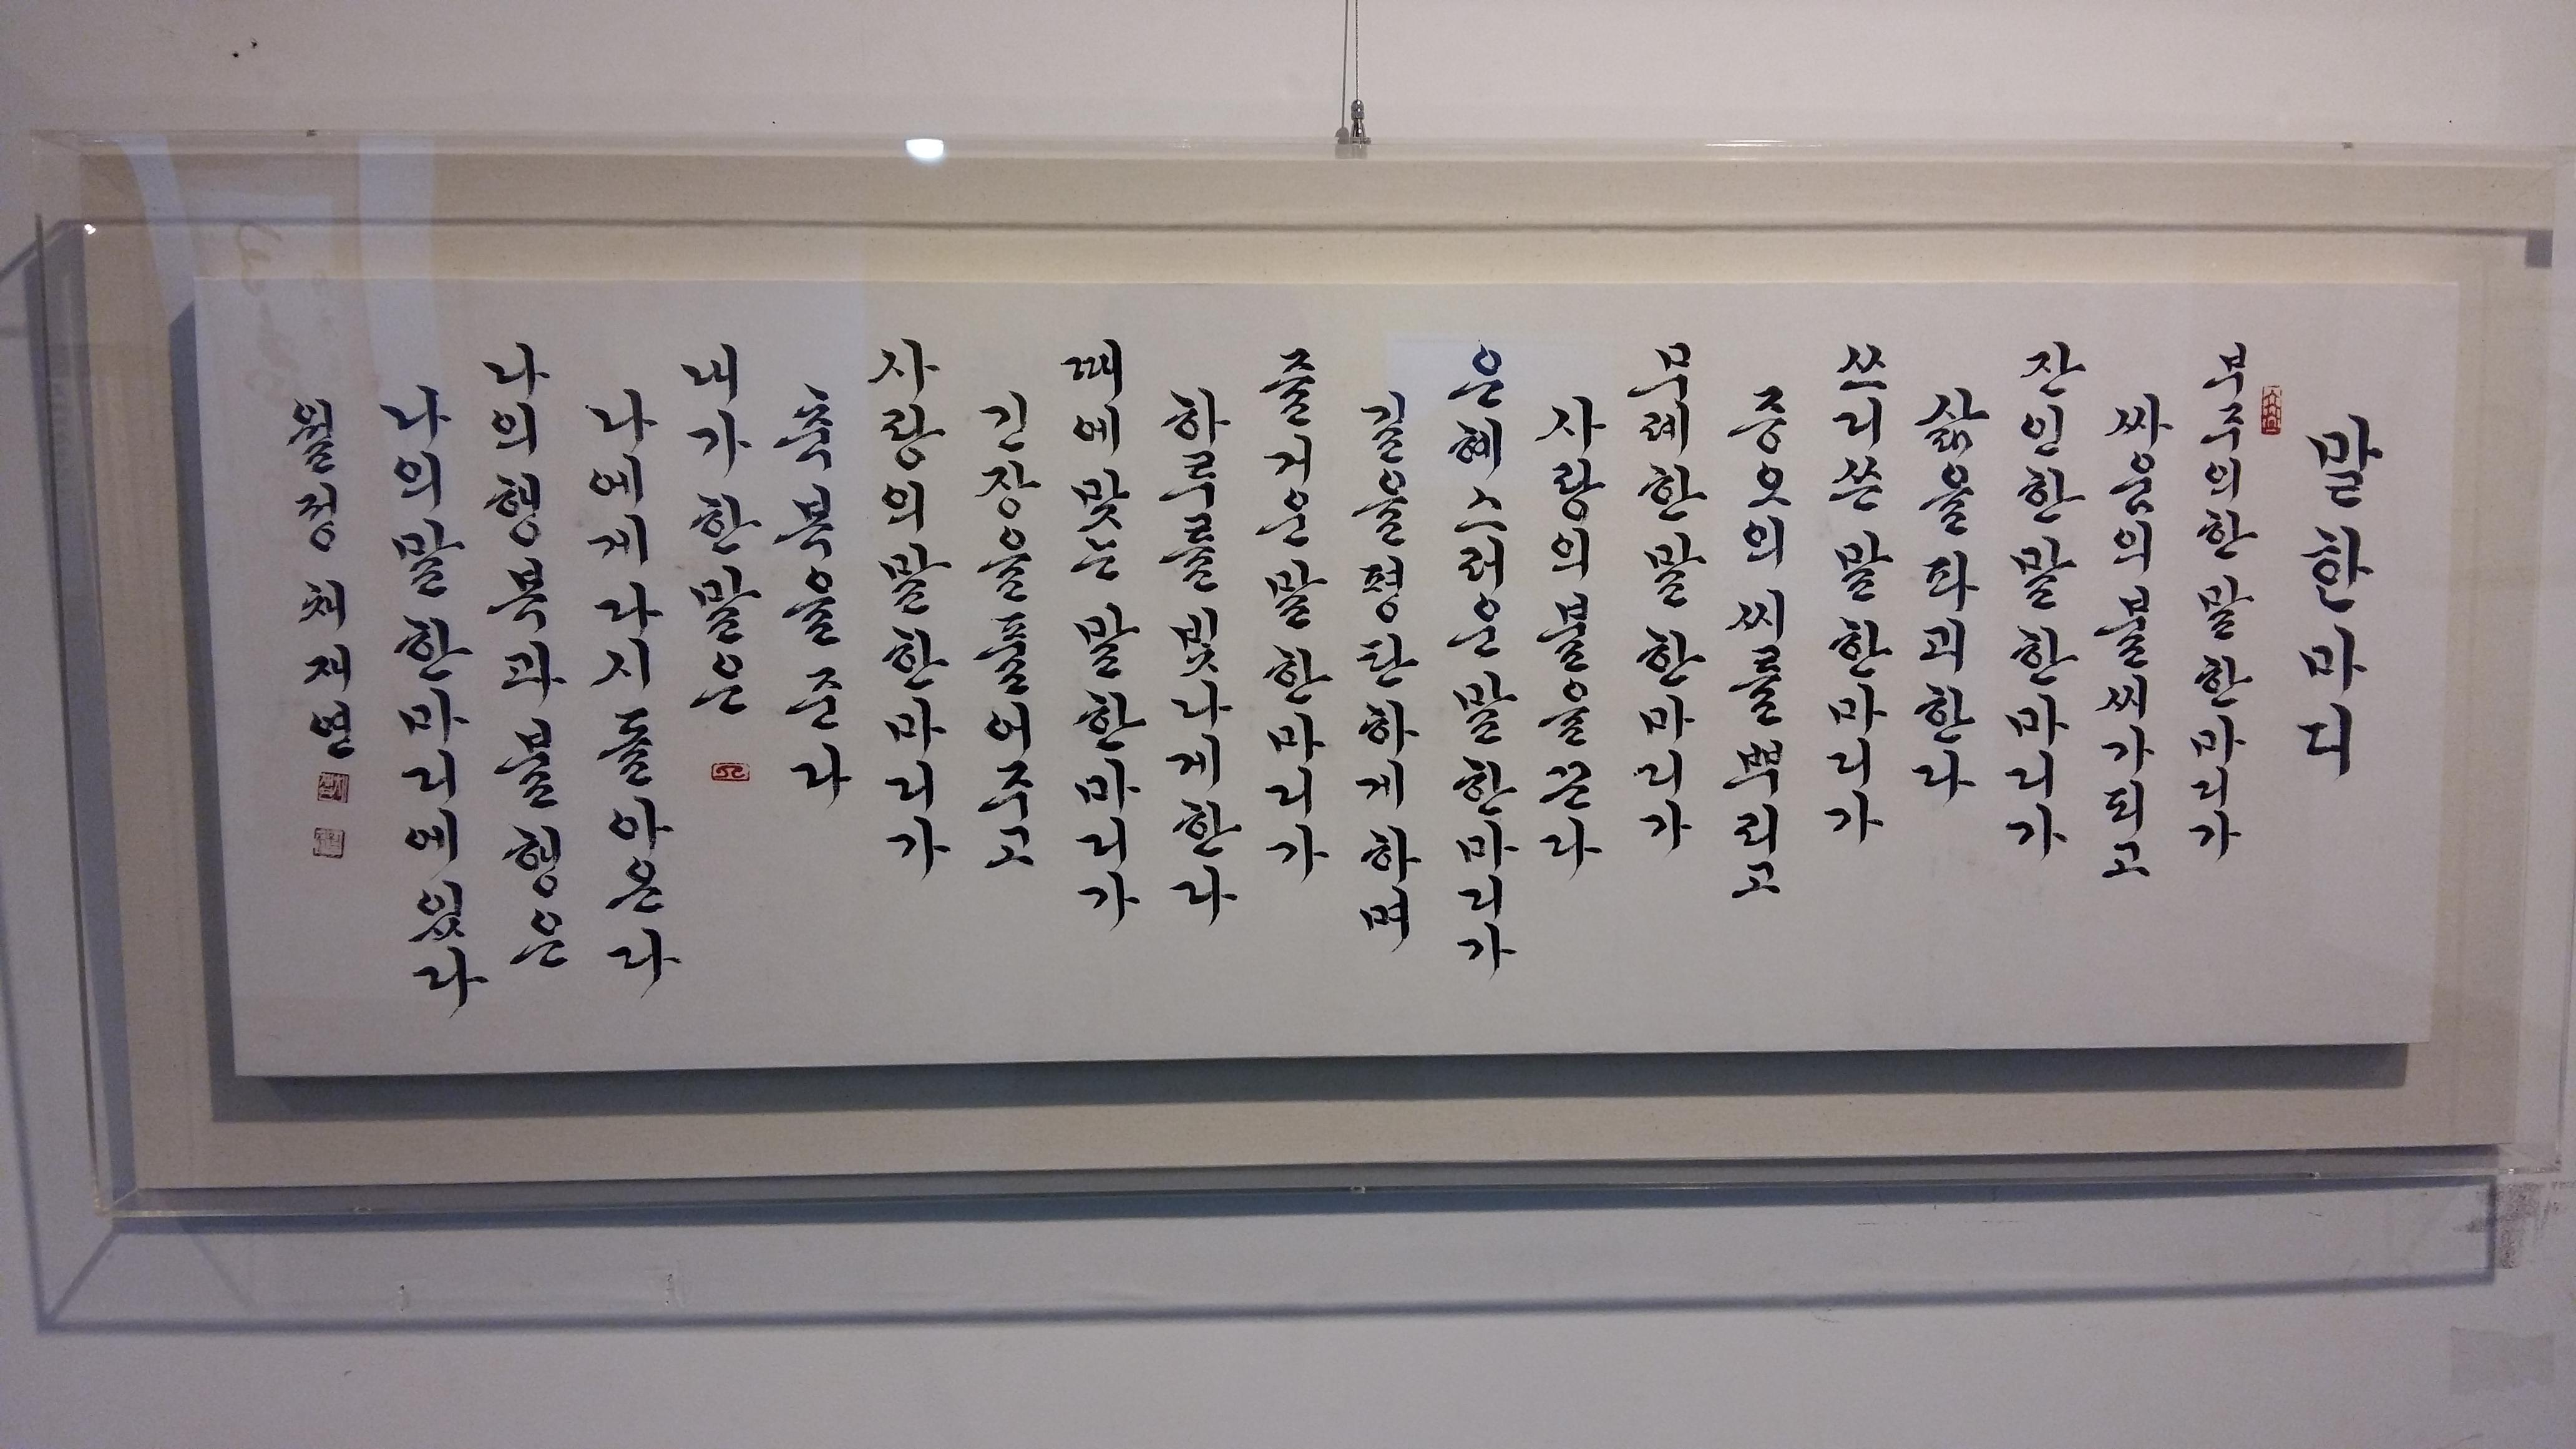 말 한 마디
부주의한 말 한마디가
싸움의 불씨가 되고
잔인한 말 한마디가
삶을 파괴한다
쓰디쓴 말 한마디가
증오의 씨를 뿌리고
무례한 말 한마디가
사랑의 불을 끈다
은혜스러운 말 한마디가
길을 평탄하게 하며
즐거운 말 한마디가
하루를 빛나게 한다
때에 맞는 말 한마디가
긴장을 풀어주고
사랑의 말 한마디가
축복을 준다
내가 한 말은
나에게 다시 돌아온다
나의 행복과 불행은
나의 말 한마디에 있다
월정 최재연